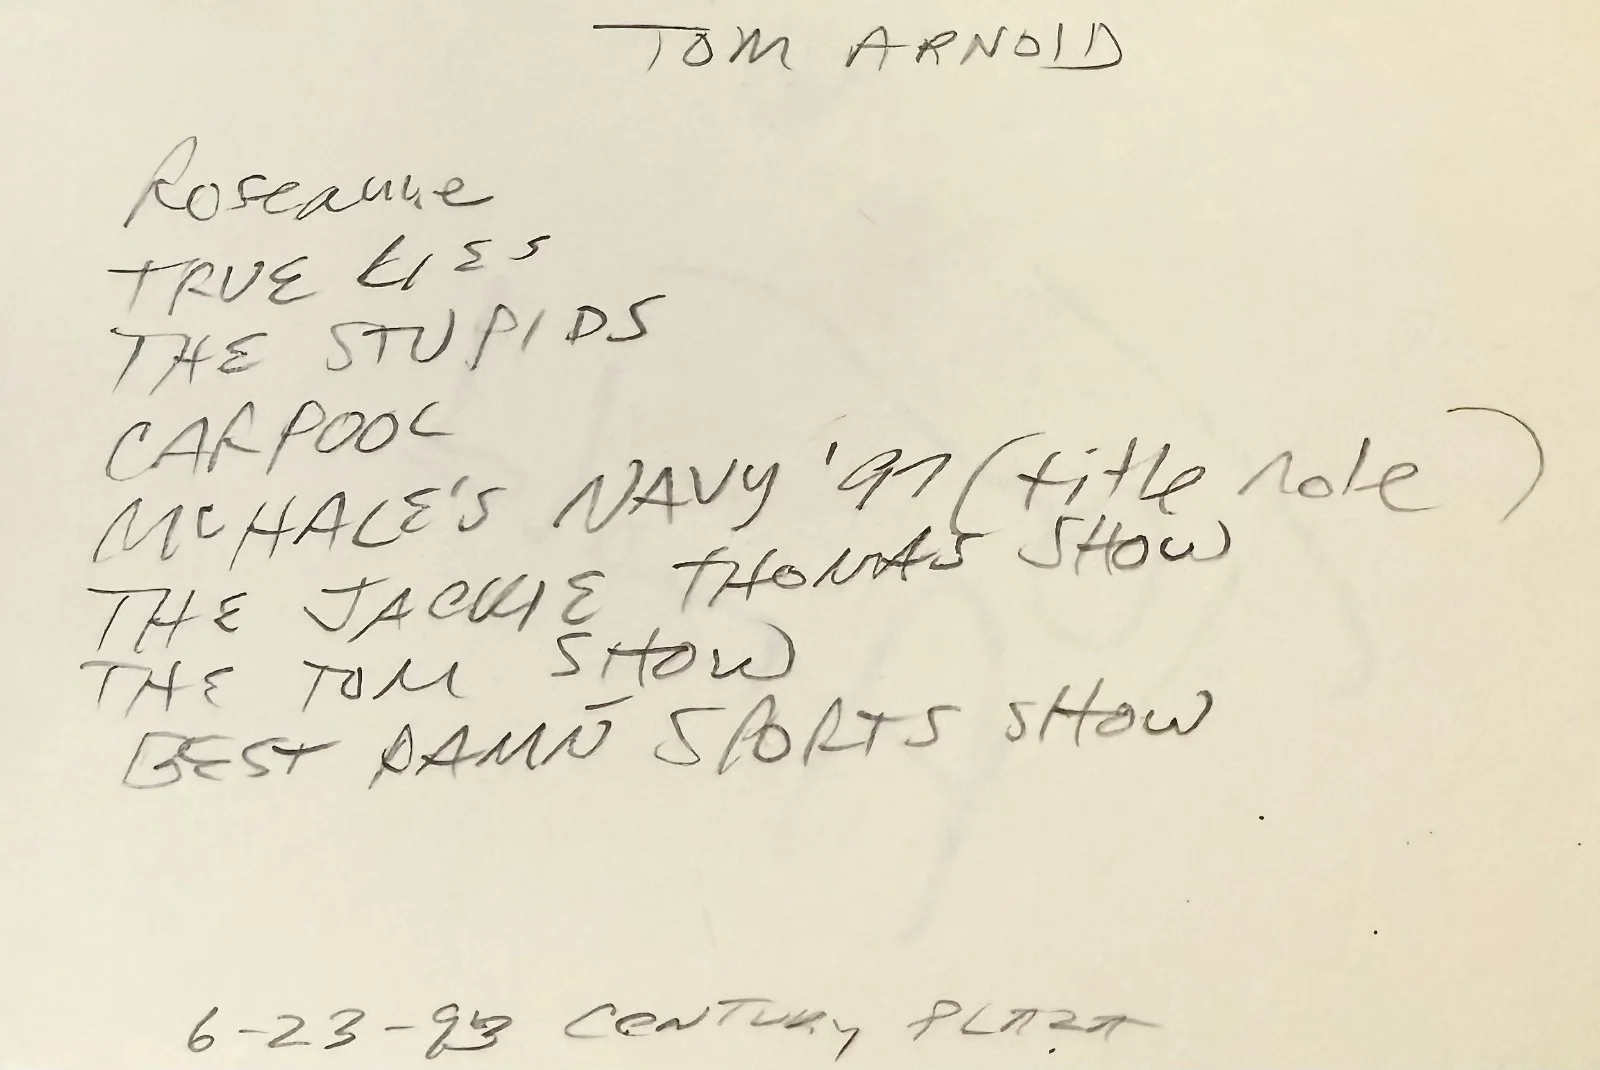 TOM ARNOLD
Roseanne
TRUE LIES
THE STUPIDS
CARPOOL
McHALE'S NAVY '97 (title role)
THE JACKIE THOMAS SHOW
THE TOM SHOW
BEST DAMN SPORTS SHOW
6-23-93 CENTURY PLAZA